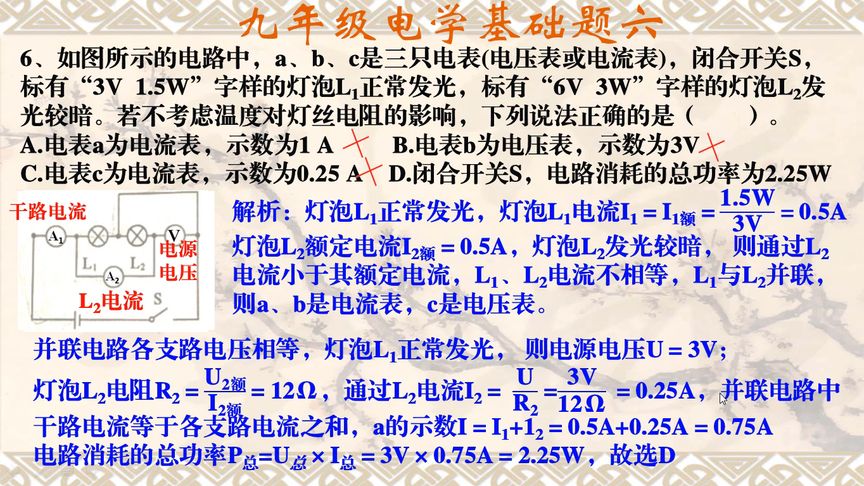 九年级电学基础题六
6、如图所示的电路中，a、b、c是三只电表(电压表或电流表)，闭合开关S，
标有“3V 1.5W”字样的灯泡L₁正常发光，标有“6V 3W”字样的灯泡L₂发
光较暗。若不考虑温度对灯丝电阻的影响，下列说法正确的是（ ）。
A.电表a为电流表，示数为1 A B.电表b为电压表，示数为3V
C.电表c为电流表，示数为0.25 A D.闭合开关S，电路消耗的总功率为2.25W
干路电流
A₁ V
电源
L₁ L₂
电压
A₂
L₂电流 S
解析：灯泡L₁正常发光，灯泡L₁电流I₁ = I₁额 = 1.5W/3V = 0.5A
灯泡L₂额定电流I₂额 = 0.5A，灯泡L₂发光较暗， 则通过L₂
电流小于其额定电流，L₁、L₂电流不相等，L₁与L₂并联，
则a、b是电流表，c是电压表。
并联电路各支路电压相等，灯泡L₁正常发光， 则电源电压U = 3V；
灯泡L₂电阻R₂ = U₂额/I₂额 = 12Ω ，通过L₂电流I₂ = U/R₂ = 3V/12Ω = 0.25A，并联电路中
干路电流等于各支路电流之和，a的示数I = I₁+1₂ = 0.5A+0.25A = 0.75A
电路消耗的总功率P总=U总 × I总 = 3V × 0.75A = 2.25W，故选D